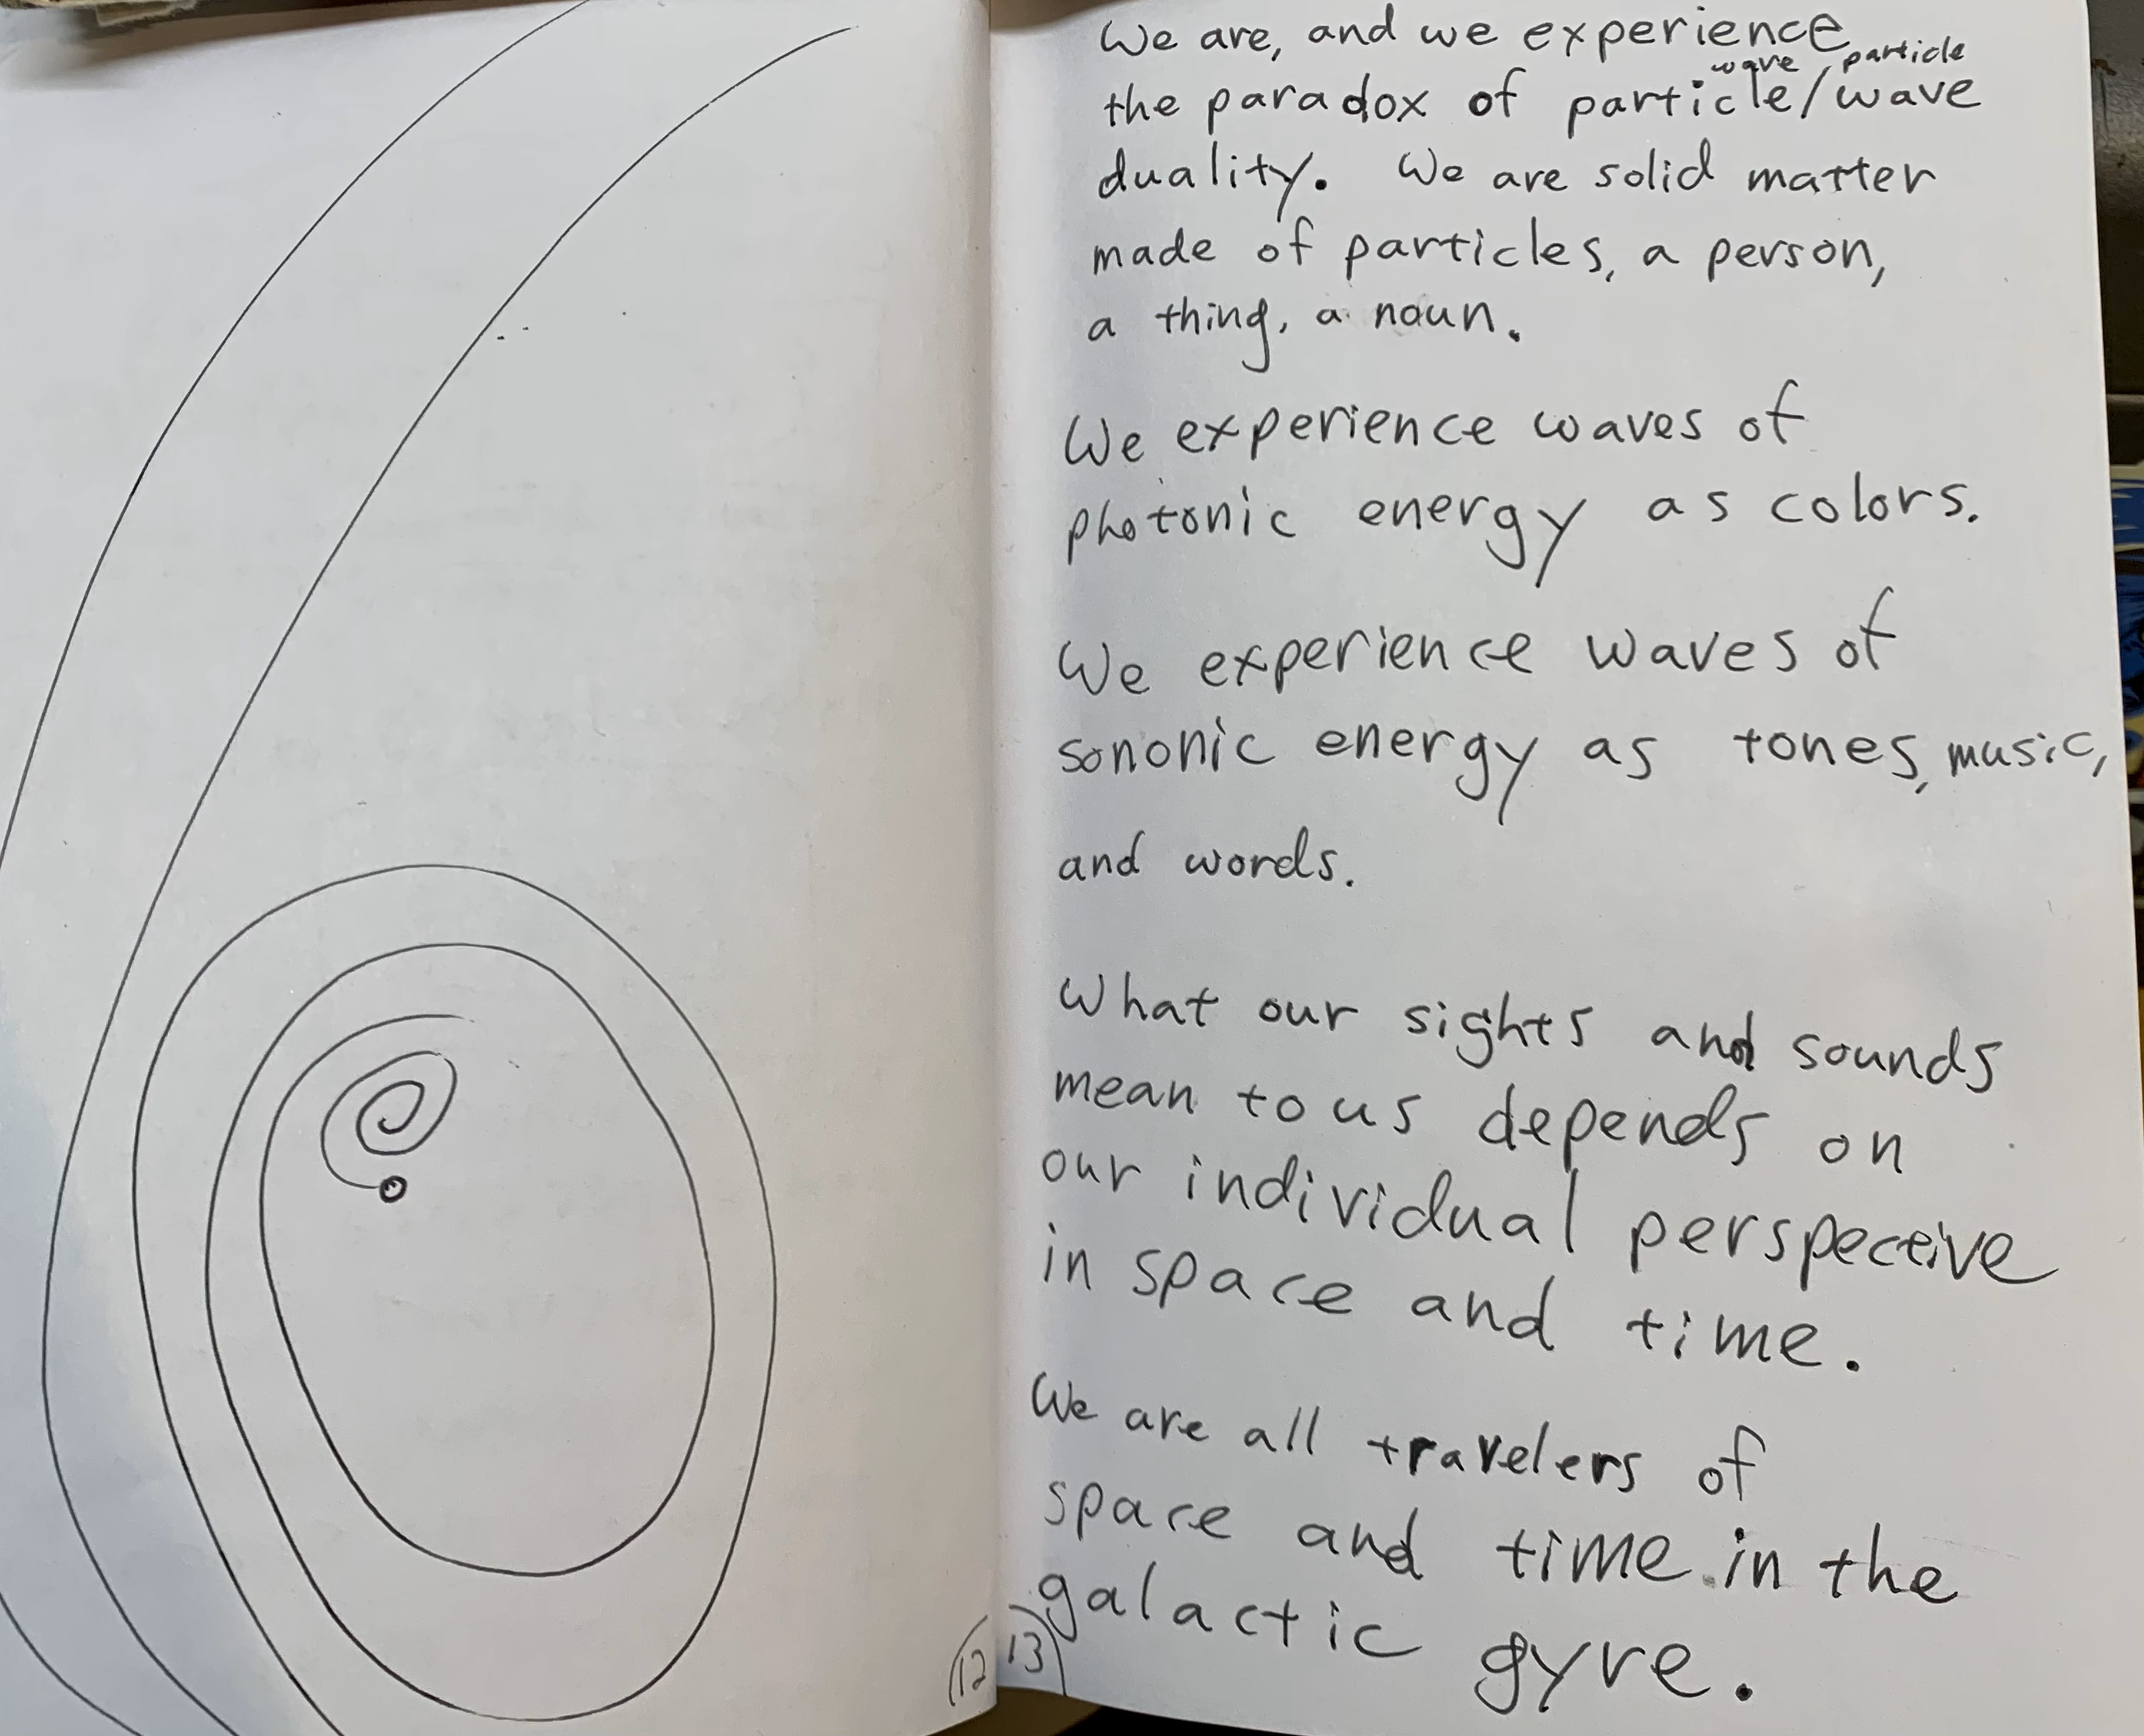 We are, and we experience
wave particle
the paradox of particle/wave
duality. We are solid matter
made of particles, a person,
a thing, a noun.
We experience waves of
photonic energy as colors.
We experience waves of
sononic energy as tones, music,
and words.
What our sights and sounds
mean to us depends on
our individual perspective
in space and time.
We are all travelers of
space and time in the
galactic gyre.
12 13